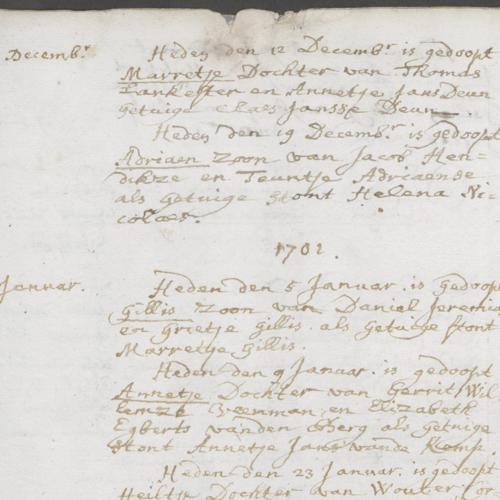 Decemb.r
Heden den 12 Decemb.r is gedoopt
Marretje Dochter van Thomas
Lankester en Annetje Jans Deun
getuige Claes Jansse Deun
Heden den 19 Decemb.r is gedoopt
Adriaen zoon van Jacob Hen=
dikze en Teuntje Adriaense
als getuige stont Helena Nic
colaes.
1701.
Januar.
Heden den 5 Januar. is gedoopt
Gillis zoon van Daniel Jeremia
en Grietje Gillis. als getuige stont
Marretje Gillis.
Heden den 9 Januar. is gedoopt
Annetje Dochter van Gerrit Wil
lemze Veenman, en Elizabeth
Egberts vanden Berg als getuige
stont Annetje Jans vande Kemp.
Heden den 23 Januar. is gedoopt
Heiltje Dochter van Wouter